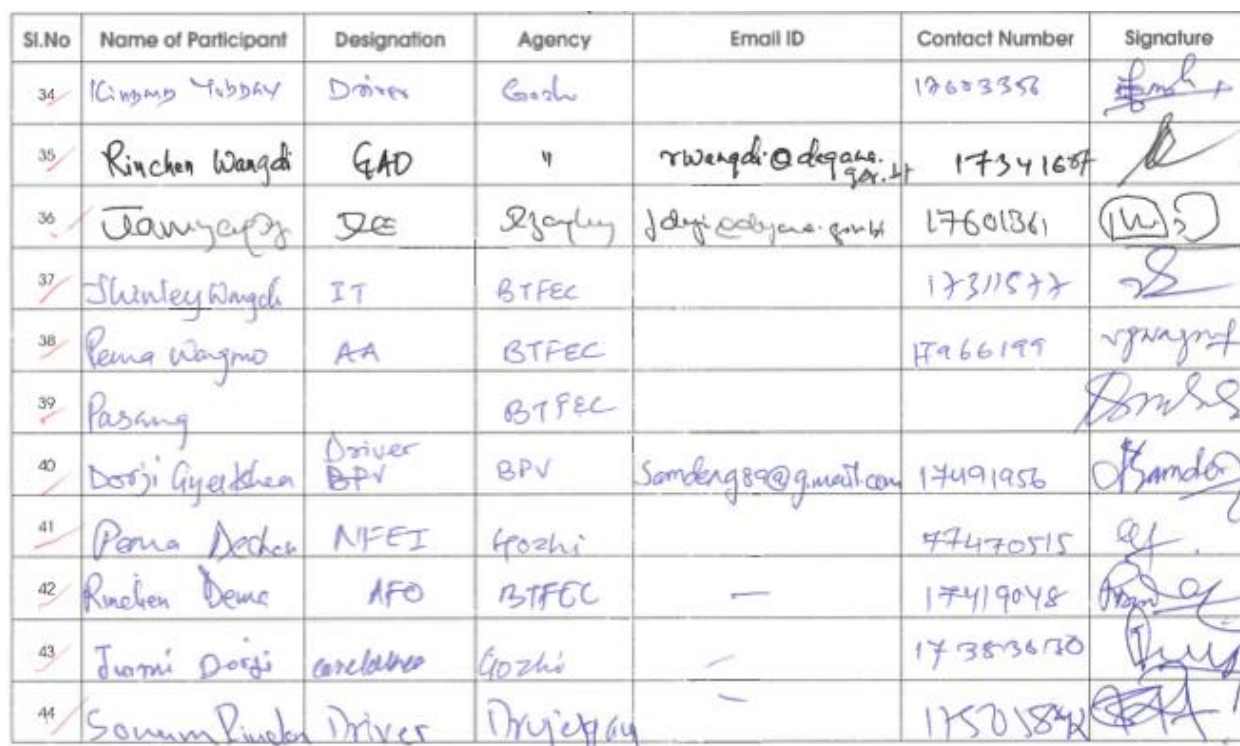 Sl.No Name of Participant Designation Agency Email ID Contact Number Signature
34 Driver Gozhi 17603356
35 Rinchen Wangdi GAO " rwangdi@dagana.gov.bt 17341607
36 DE 17601361
37 Thinley Wangdi IT BTFEC 17311577
38 Pema Wangmo AA BTFEC 17966199
39 Pasang BTFEC
40 Dorji Gyeltshen Driver BPV Samdeng89@gmail.com 17491956
41 Pema Dechen NFEI Gozhi 77470515
42 Rinchen Dema AFO BTFEC — 17419048
43 Jurmi Dorji caretaker Gozhi – 17383630
44 Sonam Rinchen Driver Drujegang –